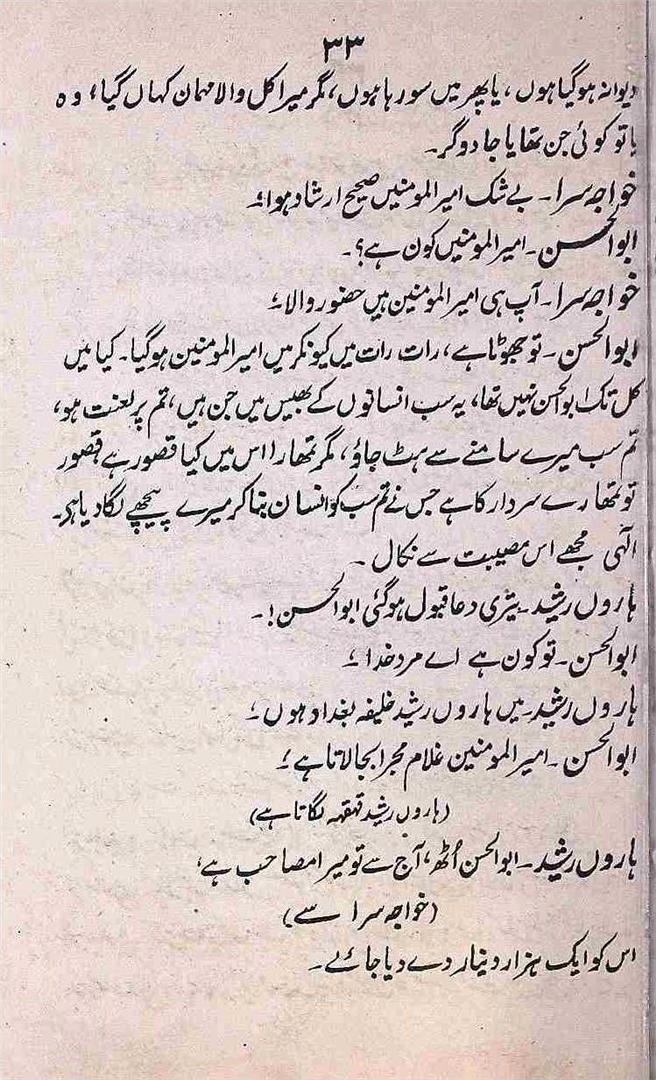 ۳۳
دیوانہ ہوگیا ہوں، یا پھر میں سو رہا ہوں، مگر میرا کل والا مہمان کہاں گیا؟ وہ
یا تو کوئی جن تھا یا جادوگر۔
خواجہ سرا۔ بے شک امیر المومنیں صحیح ارشاد ہوا؛
ابوالحسن۔ امیر المومنیں کون ہے؟۔
خواجہ سرا۔ آپ ہی امیر المومنین ہیں حضور والا؛
ابوالحسن۔ تو جھوٹا ہے، رات رات میں کیونکر میں امیر المومنین ہوگیا۔ کیا میں
کل تک ابوالحسن نہیں تھا، یہ سب انسانوں کے بھیس میں جن ہیں، تم پر لعنت ہو،
تم سب میرے سامنے سے ہٹ جاؤ، مگر تمھارا اس میں کیا قصور ہے قصور
تو تمھارے سردار کا ہے جس نے تم سب کو انسان بنا کر میرے پیچھے لگا دیا ہے۔
الٰہی مجھے اس مصیبت سے نکال۔
ہاروں رشید۔ تیری دعا قبول ہوگئی ابوالحسن!۔
ابوالحسن۔ تو کون ہے اے مرد خدا؛
ہاروں رشید۔ میں ہاروں رشید خلیفہ بغداد ہوں؛
ابوالحسن۔ امیر المومنین غلام مجرا بجا لاتا ہے؛
(ہاروں رشید قہقہہ لگاتا ہے)
ہاروں رشید۔ ابوالحسن اُٹھ، آج سے تو میرا مصاحب ہے،
(خواجہ سرا سے)
اس کو ایک ہزار دینار دے دیا جائے۔